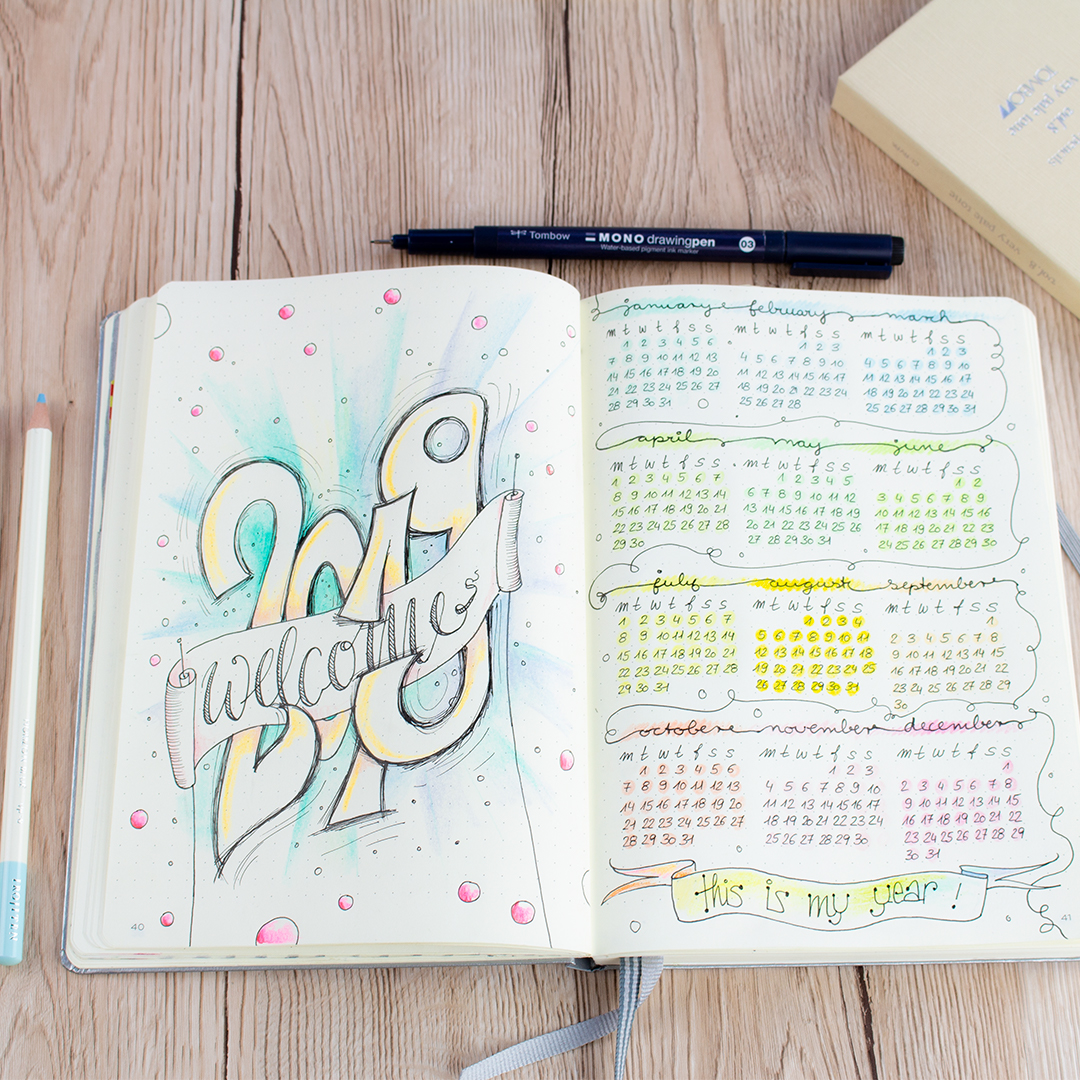 Tombow MONO drawingpen 03
Water-based pigment ink marker
TOMBOW
very pale tone
vol.8
vol.8 very pale tone
2019
welcomes
40
january february march
m t w t f s s m t w t f s s m t w t f s s
1 2 3 4 5 6 1 2 3 1 2 3
7 8 9 10 11 12 13 4 5 6 7 8 9 10 4 5 6 7 8 9 10
14 15 16 17 18 19 20 11 12 13 14 15 16 17 11 12 13 14 15 16 17
21 22 23 24 25 26 27 18 19 20 21 22 23 24 18 19 20 21 22 23 24
28 29 30 31 25 26 27 28 25 26 27 28 29 30 31
april may june
m t w t f s s m t w t f s s m t w t f s s
1 2 3 4 5 6 7 1 2 3 4 5 1 2
8 9 10 11 12 13 14 6 7 8 9 10 11 12 3 4 5 6 7 8 9
15 16 17 18 19 20 21 13 14 15 16 17 18 19 10 11 12 13 14 15 16
22 23 24 25 26 27 28 20 21 22 23 24 25 26 17 18 19 20 21 22 23
29 30 27 28 29 30 31 24 25 26 27 28 29 30
july august september
m t w t f s s m t w t f s s m t w t f s s
1 2 3 4 5 6 7 1 2 3 4 1
8 9 10 11 12 13 14 5 6 7 8 9 10 11 2 3 4 5 6 7 8
15 16 17 18 19 20 21 12 13 14 15 16 17 18 9 10 11 12 13 14 15
22 23 24 25 26 27 28 19 20 21 22 23 24 25 16 17 18 19 20 21 22
29 30 31 26 27 28 29 30 31 23 24 25 26 27 28 29
30
october november december
m t w t f s s m t w t f s s m t w t f s s
1 2 3 4 5 6 1 2 3 1
7 8 9 10 11 12 13 4 5 6 7 8 9 10 2 3 4 5 6 7 8
14 15 16 17 18 19 20 11 12 13 14 15 16 17 9 10 11 12 13 14 15
21 22 23 24 25 26 27 18 19 20 21 22 23 24 16 17 18 19 20 21 22
28 29 30 31 25 26 27 28 29 30 23 24 25 26 27 28 29
30 31
this is my year !
41